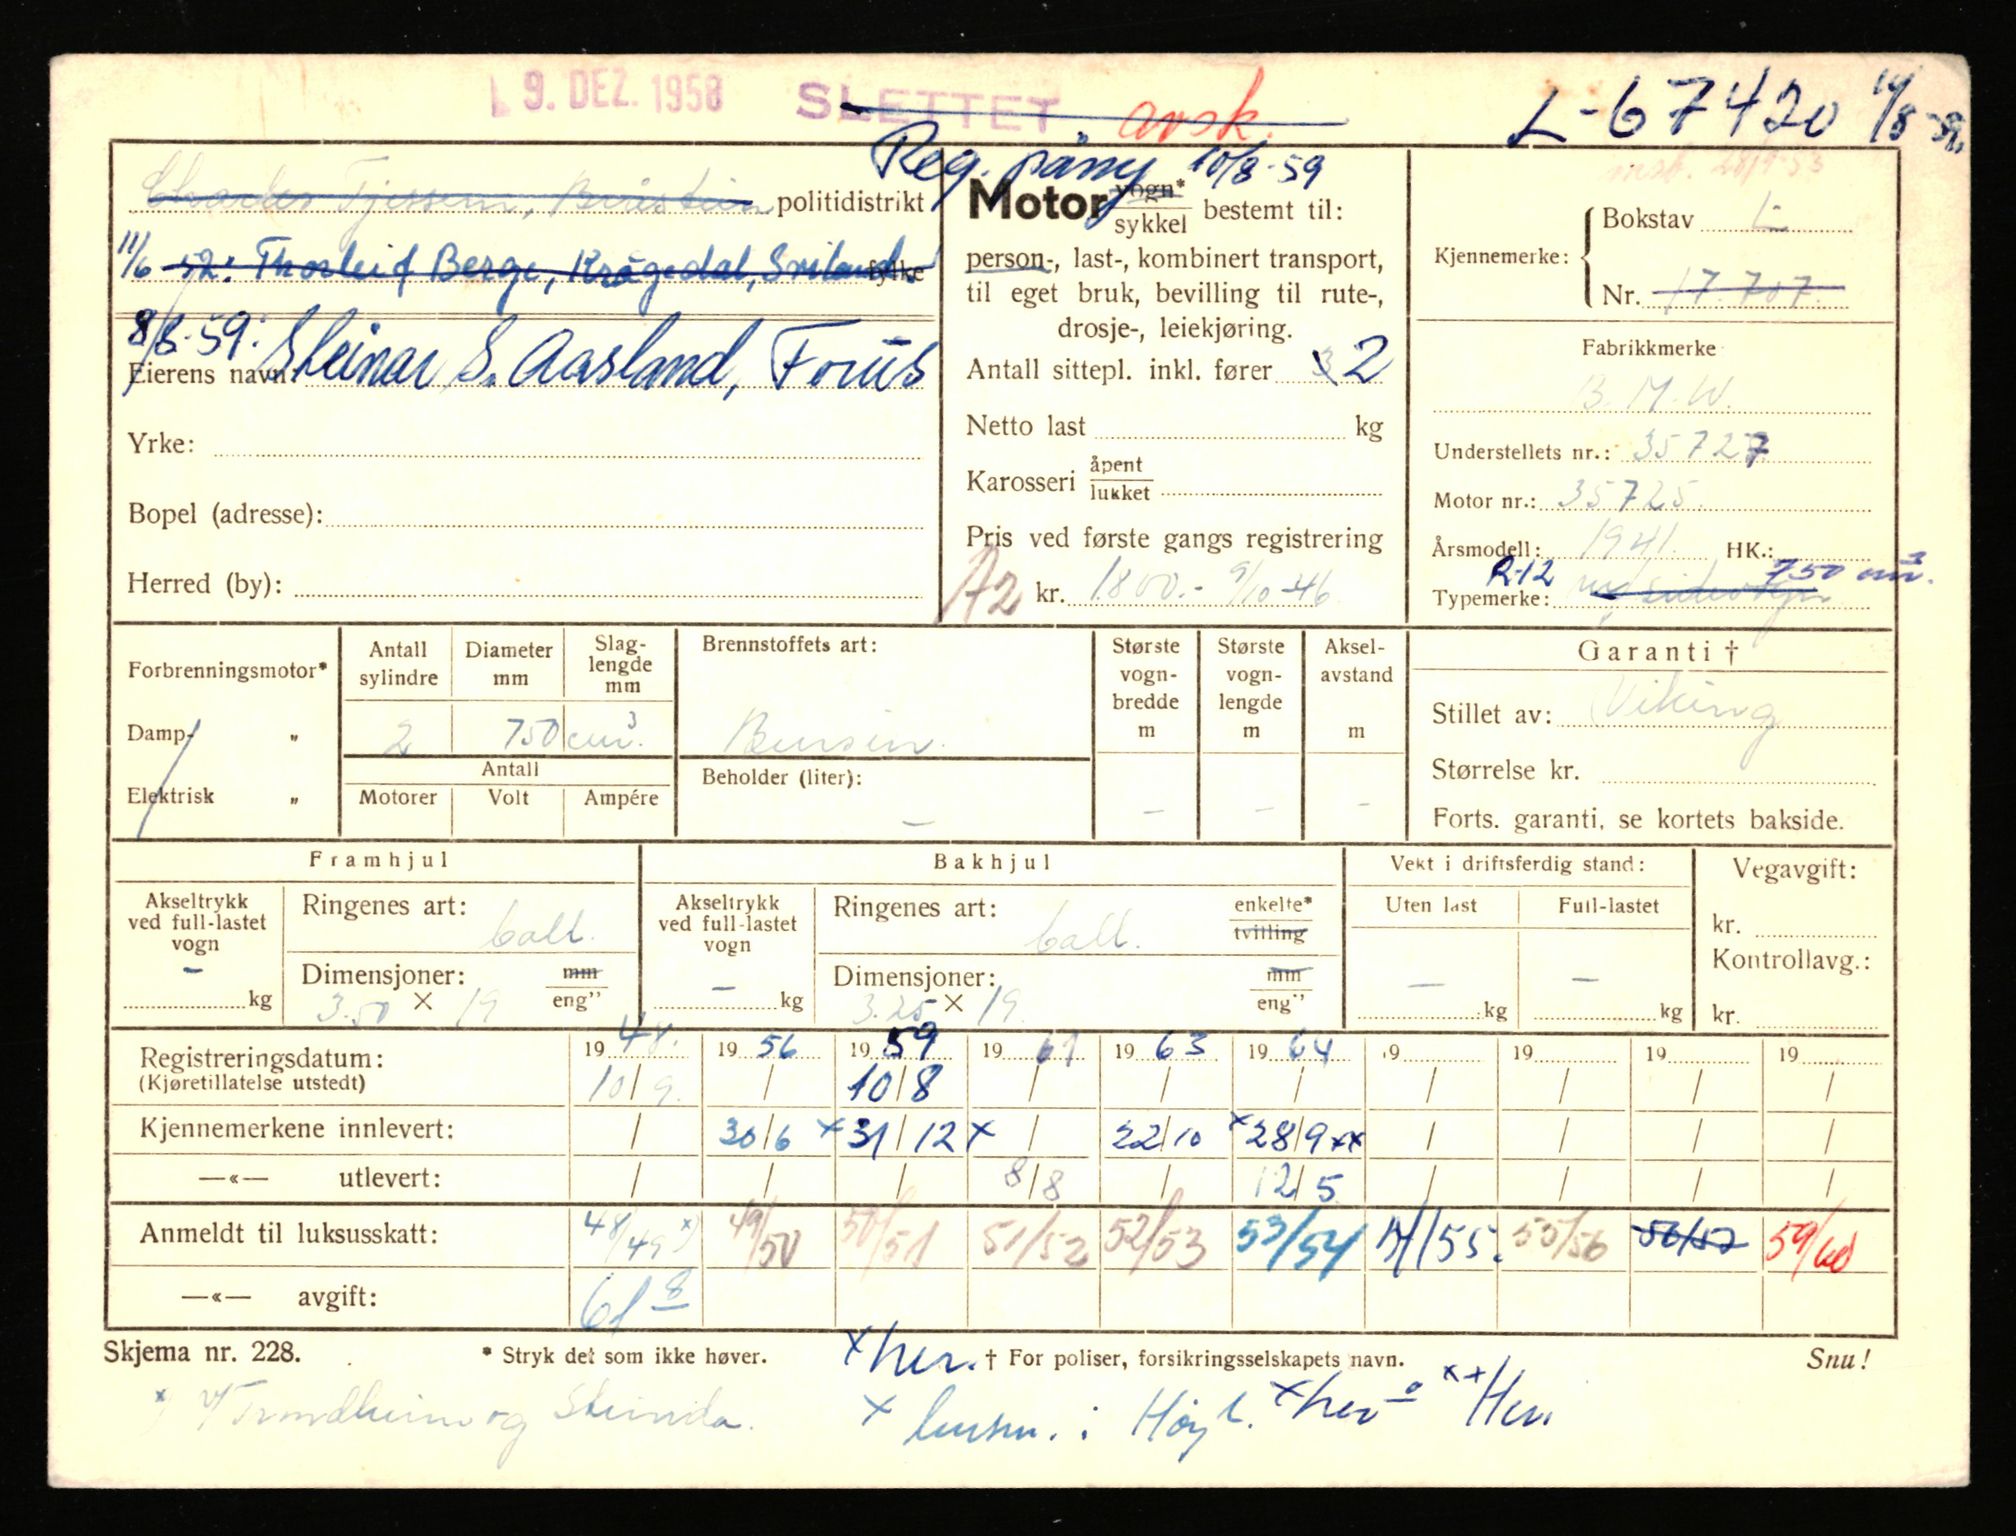 9. DEZ. 1958 SLETTET avsk. L-67420 14/8-59.
Reg. påny 10/8-59
politidistrikt
11/6 52: Thorleif Berge, Krågedal, fylke
8/8-59: Steinar S. Aasland, Forus
Eierens navn:
Yrke:
Bopel (adresse):
Herred (by):
Motor vogn* sykkel bestemt til:
person-, last-, kombinert transport,
til eget bruk, bevilling til rute-,
drosje-, leiekjøring.
Antall sittepl. inkl. fører 3 2
Netto last kg
Karosseri åpent lukket
Pris ved første gangs registrering
A2 kr. 1800.- 9/10-46
Kjennemerke: Bokstav L
Nr. 17.707.
Fabrikkmerke
B.M.W.
Understellets nr.: 35727
Motor nr.: 35725.
Årsmodell: 1941. HK.:
R-12 750 cm³.
Typemerke:
Forbrenningsmotor*
Damp- „
Elektrisk „
Antall sylindre Diameter mm Slag-lengde mm
2 750 cm³.
Antall
Motorer Volt Ampére
Brennstoffets art:
Bensin.
Beholder (liter): –
Største vogn-bredde m –
Største vogn-lengde m –
Aksel-avstand m –
Garanti †
Stillet av: Viking
Størrelse kr.
Forts. garanti, se kortets bakside.
Framhjul
Akseltrykk ved full-lastet vogn – kg
Ringenes art: ball.
Dimensjoner: mm eng”
3.50 × 19
Bakhjul
Akseltrykk ved full-lastet vogn – kg
Ringenes art: ball. enkelte* tvilling
Dimensjoner: mm eng”
3.25 × 19
Vekt i driftsferdig stand:
Uten last Full-lastet
– kg – kg
Vegavgift:
kr.
Kontrollavg.:
kr.
Registreringsdatum: 1948. 1956 1959 1961 1963 1964 19 19 19 19
(Kjøretillatelse utstedt) 10/9. / 10/8 / / / / / / /
Kjennemerkene innlevert: / 30/6 × 31/12 × / 22/10 × 28/9 ×× / / / /
—«— utlevert: / / / 8/8 / 12/5 / / / /
Anmeldt til luksusskatt: 48/49 ×) 49/50 50/51 51/52 52/53 53/54 54/55. 55/56 56/57 59/60
—«— avgift: 61 8
Skjema nr. 228. * Stryk det som ikke høver. × her. † For poliser, forsikringsselskapets navn. Snu!
×) Trondheim og Strinda. × lensm. i Høyl. × her ×× Her.